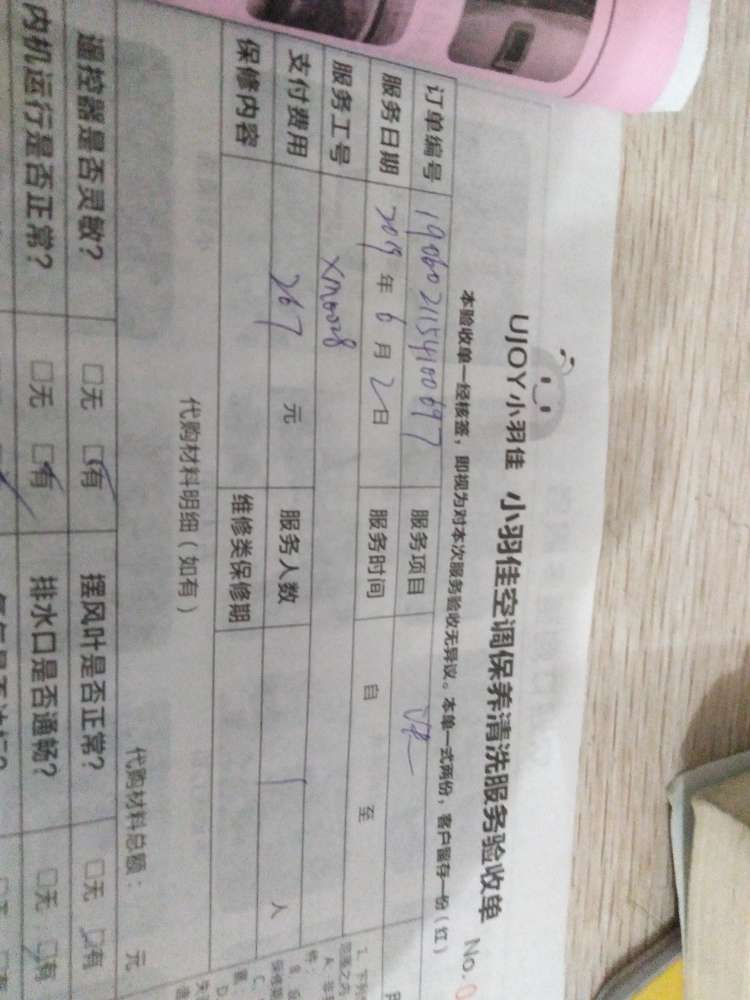 UJOY小羽佳 小羽佳空调保养清洗服务验收单 No.0
本验收单一经核签，即视为对本次服务验收无异议。本单一式两份，客户留存一份（红）
订单编号 1906021154100697 服务项目
服务日期 2019年6月2日 服务时间 自 至
服务工号 XM0028
支付费用 267 元 服务人数 1 人
保修内容 维修类保修期
代购材料明细（如有）
代购材料总额： 元
遥控器是否灵敏？ □无 □有 摆风叶是否正常？ □无 □有
内机运行是否正常？ □无 □有 排水口是否通畅？ □无 □有